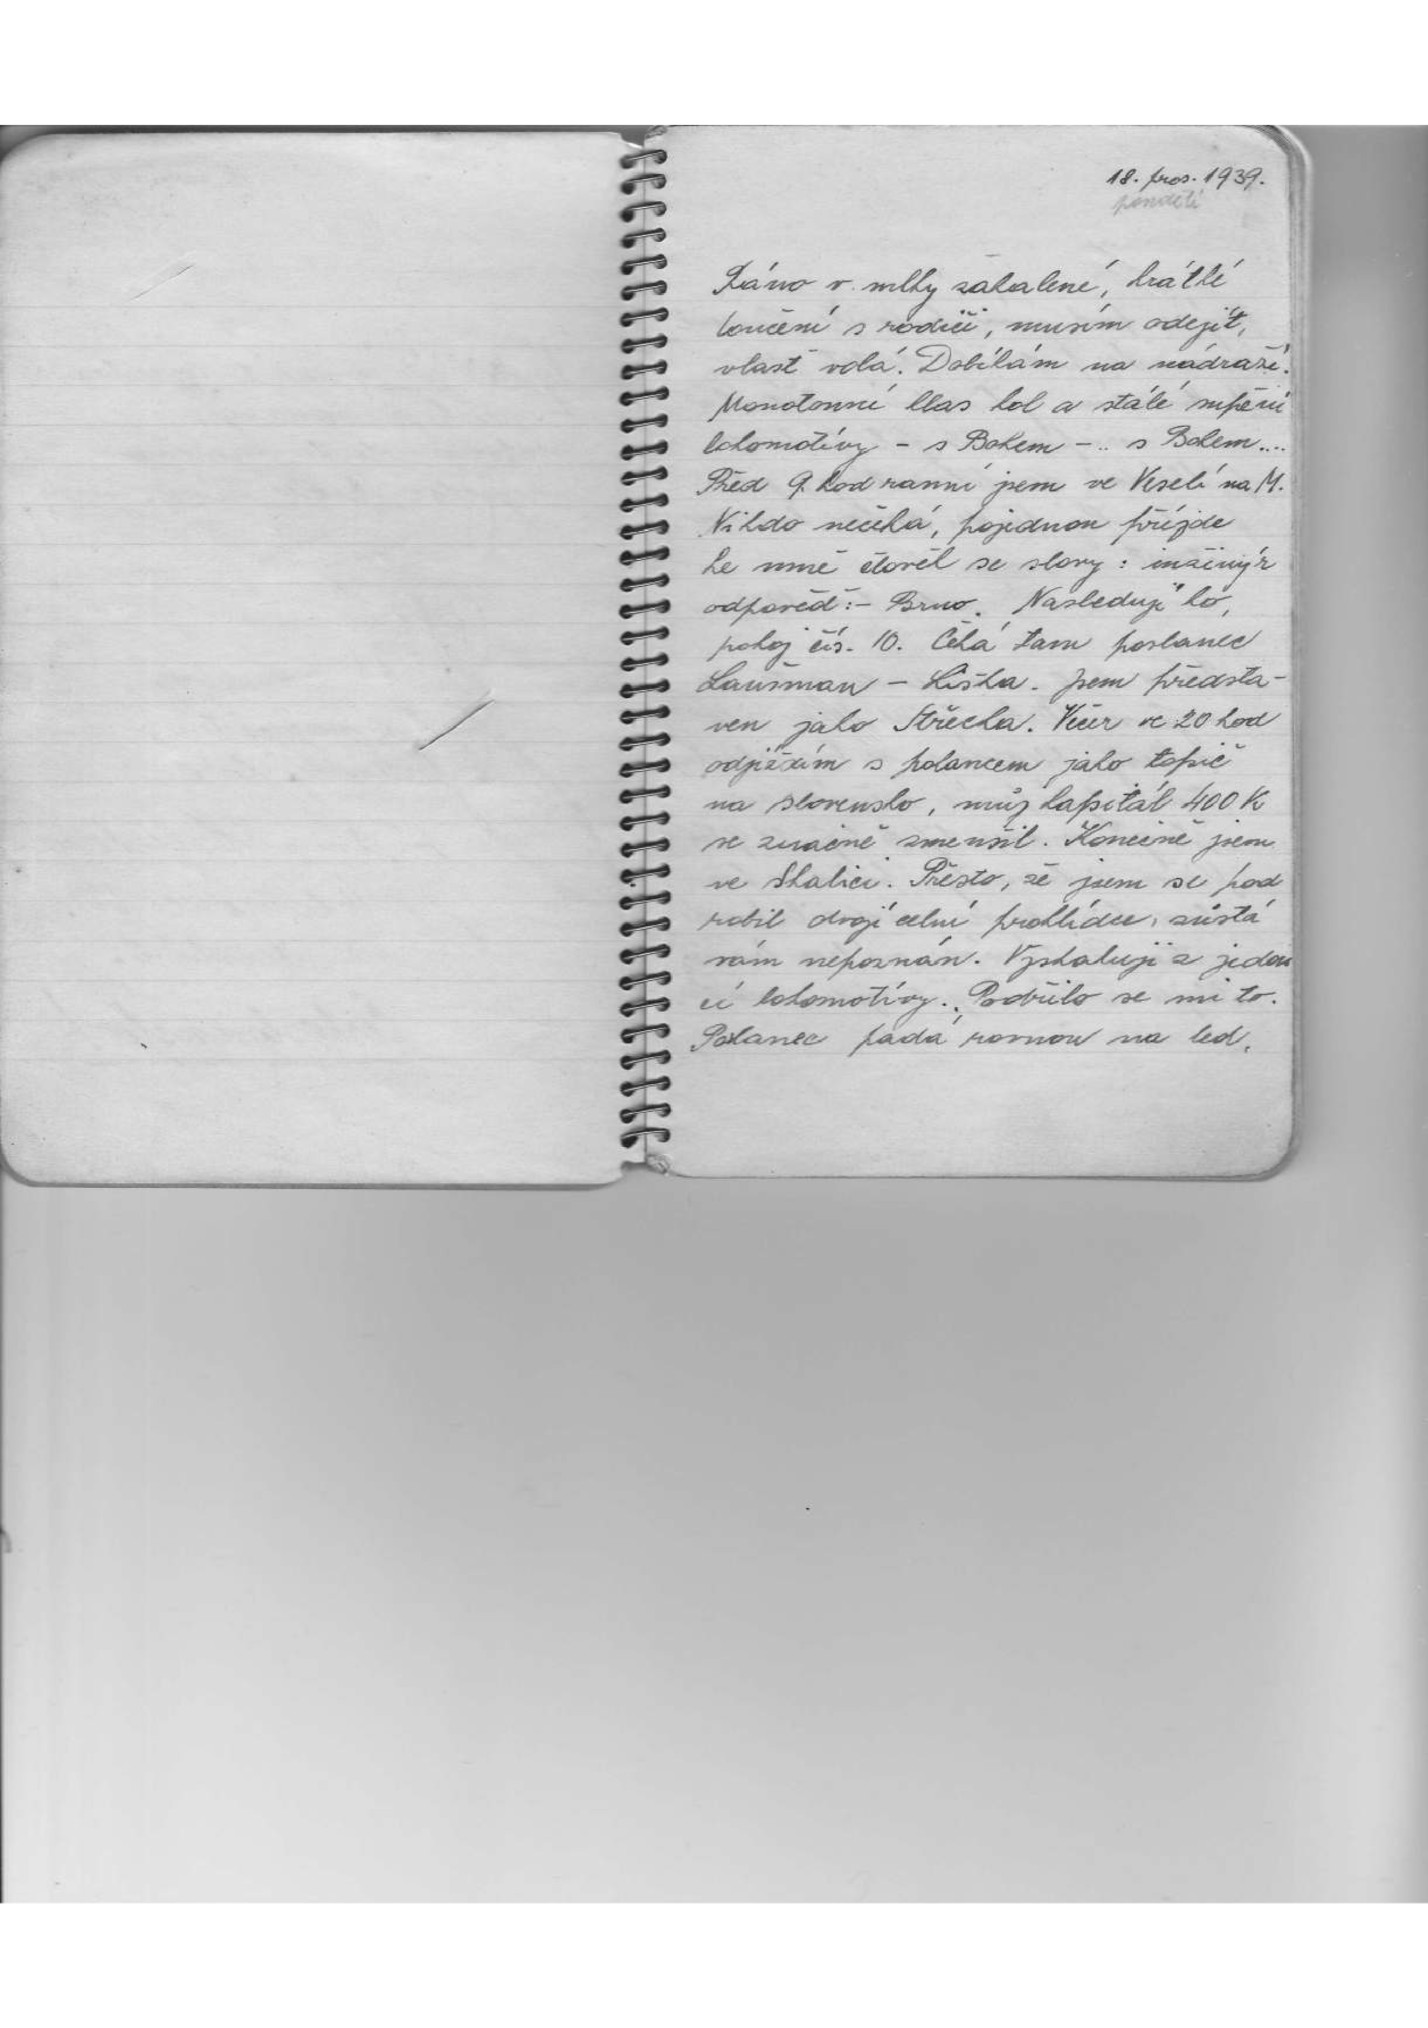 18. pros. 1939.
pondělí
Ráno v mlhy zahalené, krátké
loučení s rodiči, musím odejít,
vlast volá. Dobíhám na nádraží.
Monotonní hlas kol a stálé supění
lokomotivy – s Bohem – .. s Bohem....
Před 9 hod ranní jsem ve Veselí na M.
Nikdo nečeká, pojednou přijde
ke mně člověk se slovy: inžinýr
odpověď: – Brno. Následuji ho,
pokoj čís. 10. Čeká tam poslanec
Laušman – Liška. Jsem předsta-
ven jako Střecha. Večer ve 20 hod
odjíždím s polancem jako topič
na Slovensko, můj kapitál 400 K
se značně zmenšil. Konečně jsem
ve Skalici. Přesto, že jsem se pod
robil dvojí celní prohlídce, zůstá
vám nepoznán. Vyskakuji z jedou
cí lokomotivy. Podařilo se mi to.
Poslanec padá rovnou na led,